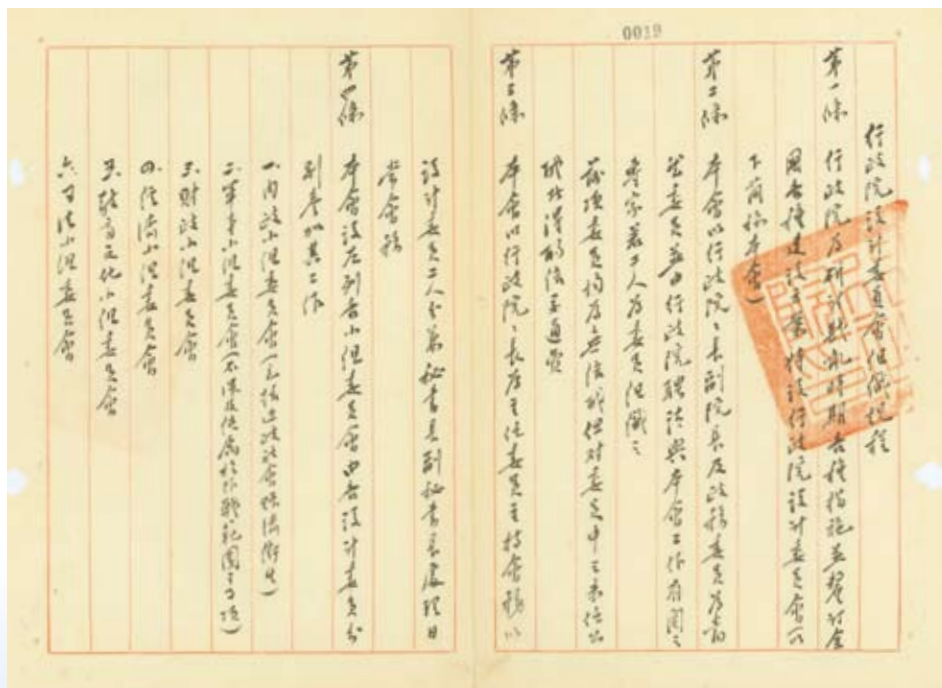 0019
行政院設計委員會組織規程
第一條 行政院為研討戡亂時期各種措施並擬訂全
國各種建設方案特設行政院設計委員會(以
下簡稱本會)
第二條 本會以行政院院長副院長及政務委員為當
然委員並由行政院聘請與本會工作有關之
專家若干人為委員組織之
前項委員均為無給職但對委員中之未任公
職者得酌給交通費
第三條 本會以行政院院長為主任委員主持會務以
設計委員二人分兼秘書長副秘書長處理日
常會務
第四條 本會設左列各小組委員會由各設計委員分
別參加其工作
一、內政小組委員會(包括地政社會賑濟衛生)
二、軍事小組委員會(不涉及統屬於作戰範圍之事項)
三、財政小組委員會
四、經濟小組委員會
五、教育文化小組委員會
六、司法小組委員會